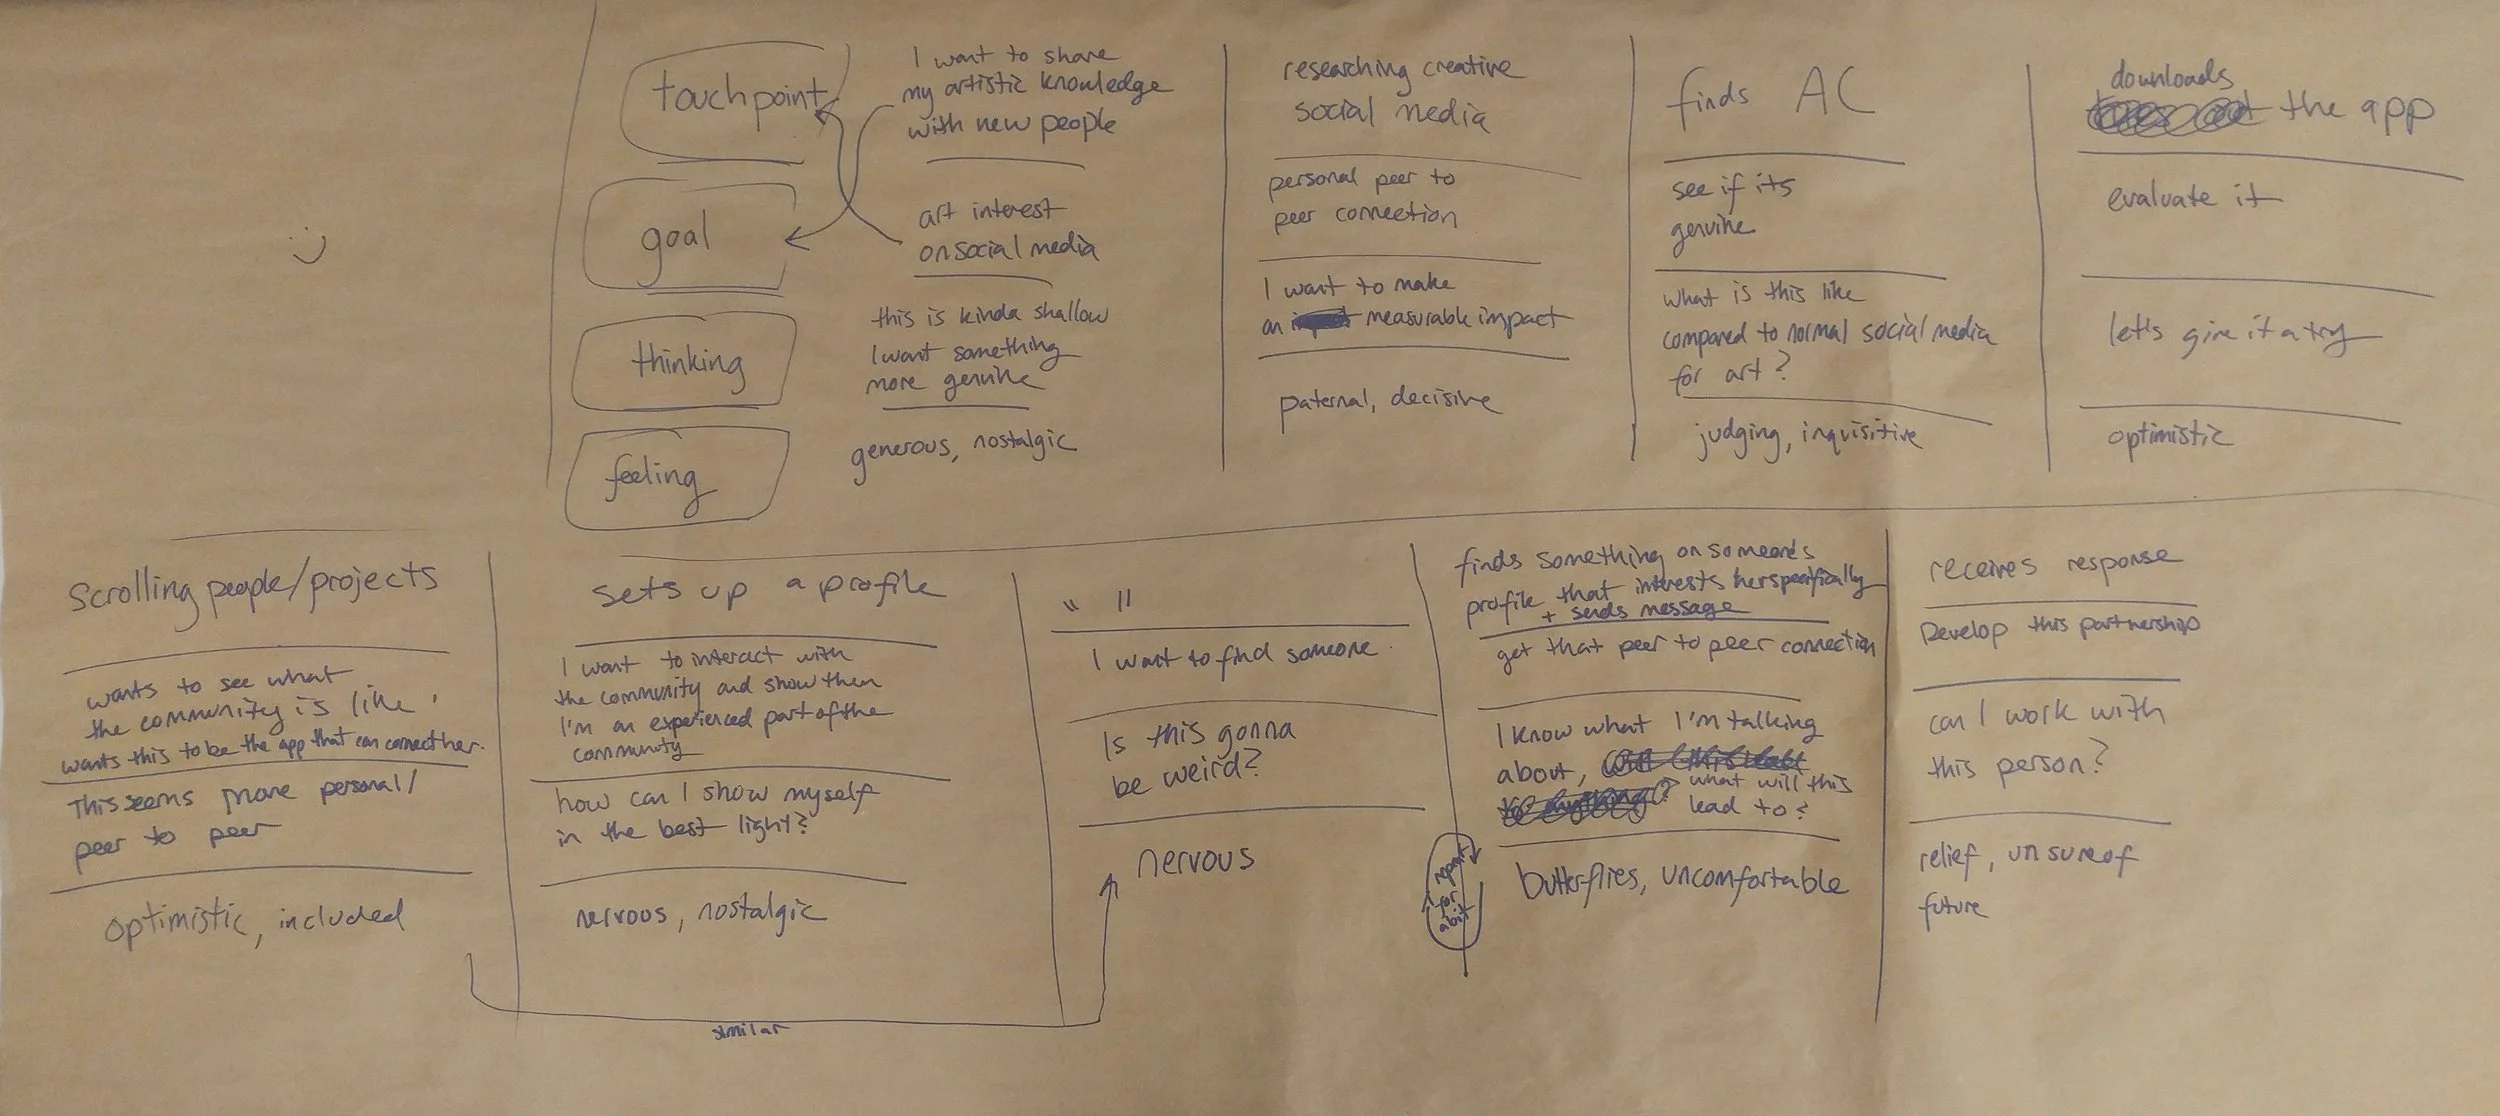 touchpoint
goal
thinking
feeling
I want to share
my artistic knowledge
with new people
art interest
on social media
this is kinda shallow
I want something
more genuine
generous, nostalgic
researching creative
social media
personal peer to
peer connection
I want to make
an measurable impact
paternal, decisive
finds AC
see if its
genuine
what is this like
compared to normal social media
for art?
judging, inquisitive
downloads
the app
evaluate it
let's give it a try
optimistic
Scrolling people/projects
wants to see what
the community is like,
wants this to be the app that can connect her.
This seems more personal/
peer to peer
optimistic, included
similar
sets up a profile
I want to interact with
the community and show them
I'm an experienced part of the
community
how can I show myself
in the best light?
nervous, nostalgic
" "
I want to find someone.
Is this gonna
be weird?
nervous
repeat
for
abit
finds something on someone's
profile that interests her specifically
+ sends message
get that peer to peer connection
I know what I'm talking
about,
what will this
lead to?
butterflies, uncomfortable
receives response
Develop this partnership
can I work with
this person?
relief, unsure of
future